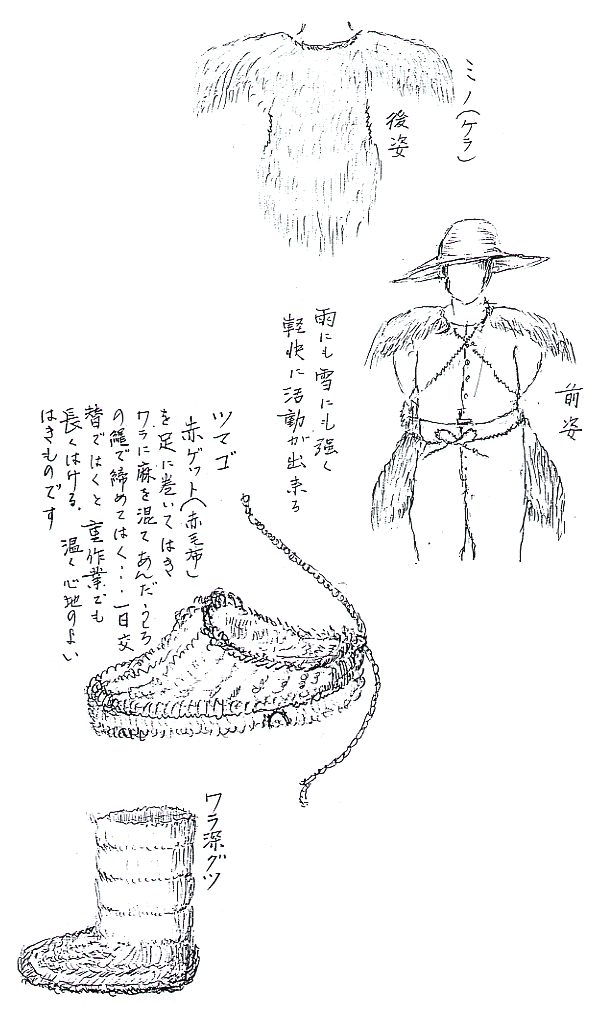 ミノ(ケラ)
後姿
前姿
雨にも雪にも強く
軽快に活動が出来る
ツマゴ
赤ゲット(赤毛布)
を足に巻いてはき
ワラに麻を混てあんだ、うしろ
の縄で締めてはく…一日交
替ではくと重作業でも
長くはける。温く心地のよい
はきものです
ワラ深グツ